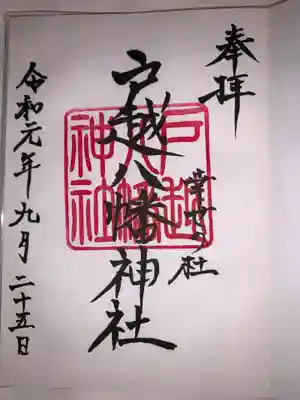 奉拝
幸せの杜
戸越八幡神社
戸越八幡神社
令和元年九月二十五日